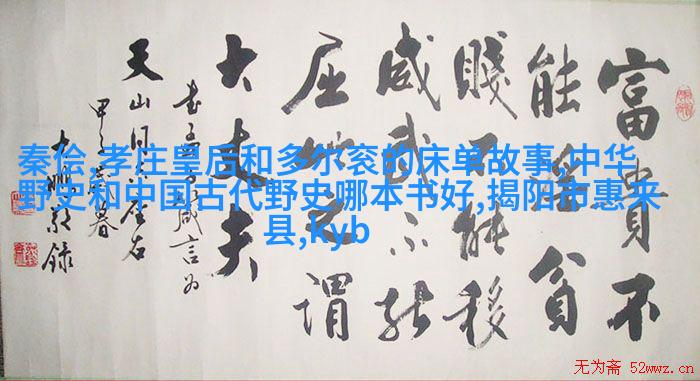 富貴不
能淫貧
賤不能移
威武不能
屈此之謂
大丈夫
箴言为
天山同志座右
甲子暮
大鹏录
秦侩,孝庄皇后和多尔衮的床单故事,中华
野史和中国古代野史哪本书好,揭阳市惠来
县,kyb
无为斋 52wwz.cn